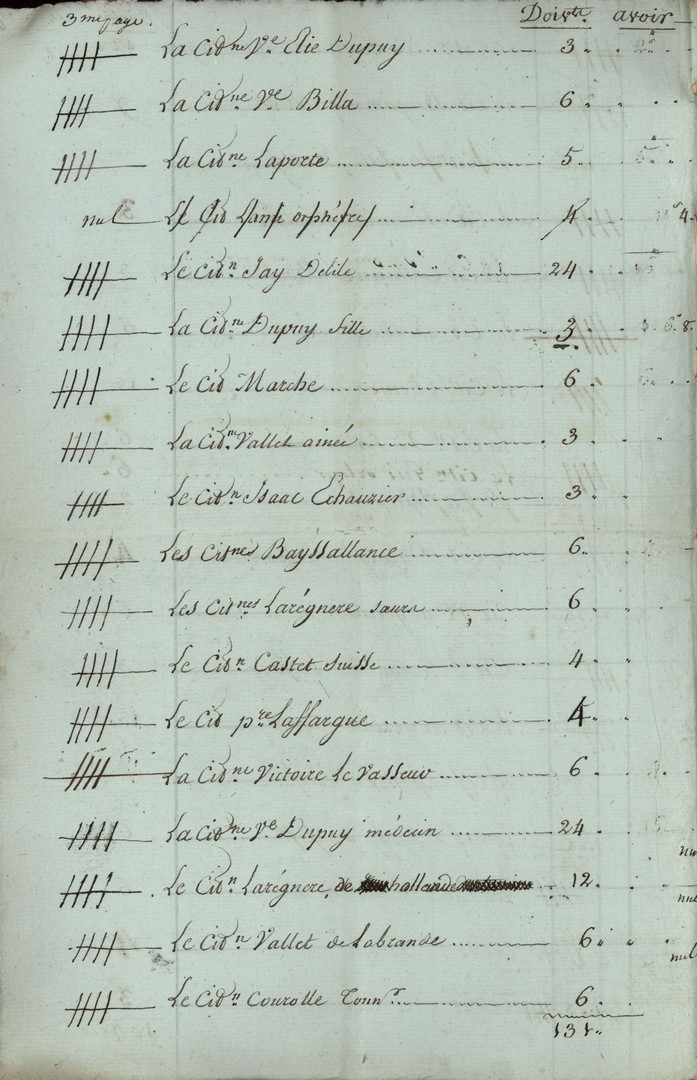 3me page. Doivte. avoir
La Cidne Ve Elie Dupuy 3
La Cidne Ve Billa 6
La Cidne Laporte 5
nul Le Cid 4 4
Le Cidn Jay Delile 24
La Cidne Dupuy fille 3. 8.
Le Cid Marche 6
La Cidne Vallet ainée 3
Le Cidn Isaac Echauzier 3
Les Citnes Bayssallance 6
Les Citnes Larégnere sœurs 6
Le Cidn Castet Suisse 4
Le Cid pre Laffargue 4
La Cidne Victoire Le Vasseur 6
La Cidne Ve Dupuy médecin 24
Le Cidn Larégnere, de hallande 12
Le Cidn Vallet de Labrande 6
nul
Le Cidn Courolle Tonnr 6
131